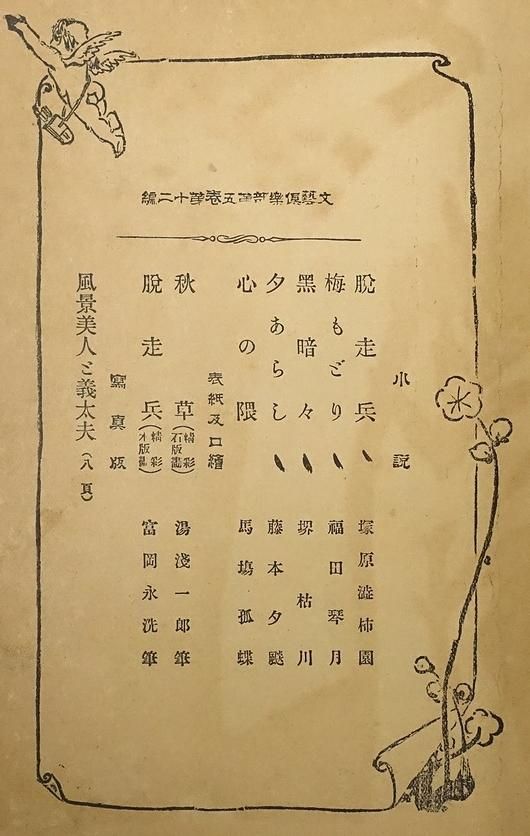 文藝倶樂部第五卷第十二編
小説
脫走兵 塚原澁柿園
梅もどり 福田琴月
黑暗々 堺枯川
夕あらし 藤本夕飈
心の隈 馬塲孤蝶
表紙及口繪
秋草(精彩石版畫) 湯淺一郎筆
脫走兵(精彩木版畫) 富岡永洗筆
寫眞版
風景美人と義太夫(八頁)